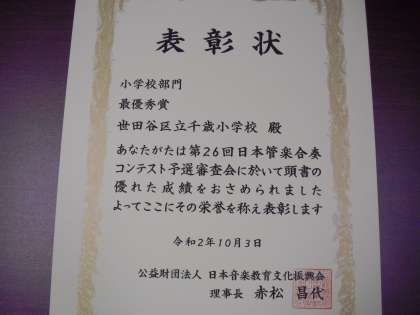 表彰状
小学校部門
最優秀賞
世田谷区立千歳小学校 殿
あなたがたは第26回日本管楽合奏
コンテスト予選審査会に於いて頭書の
優れた成績をおさめられました
よってここにその栄誉を称え表彰します
令和2年10月3日
公益財団法人 日本音楽教育文化振興会
理事長 赤松 昌代